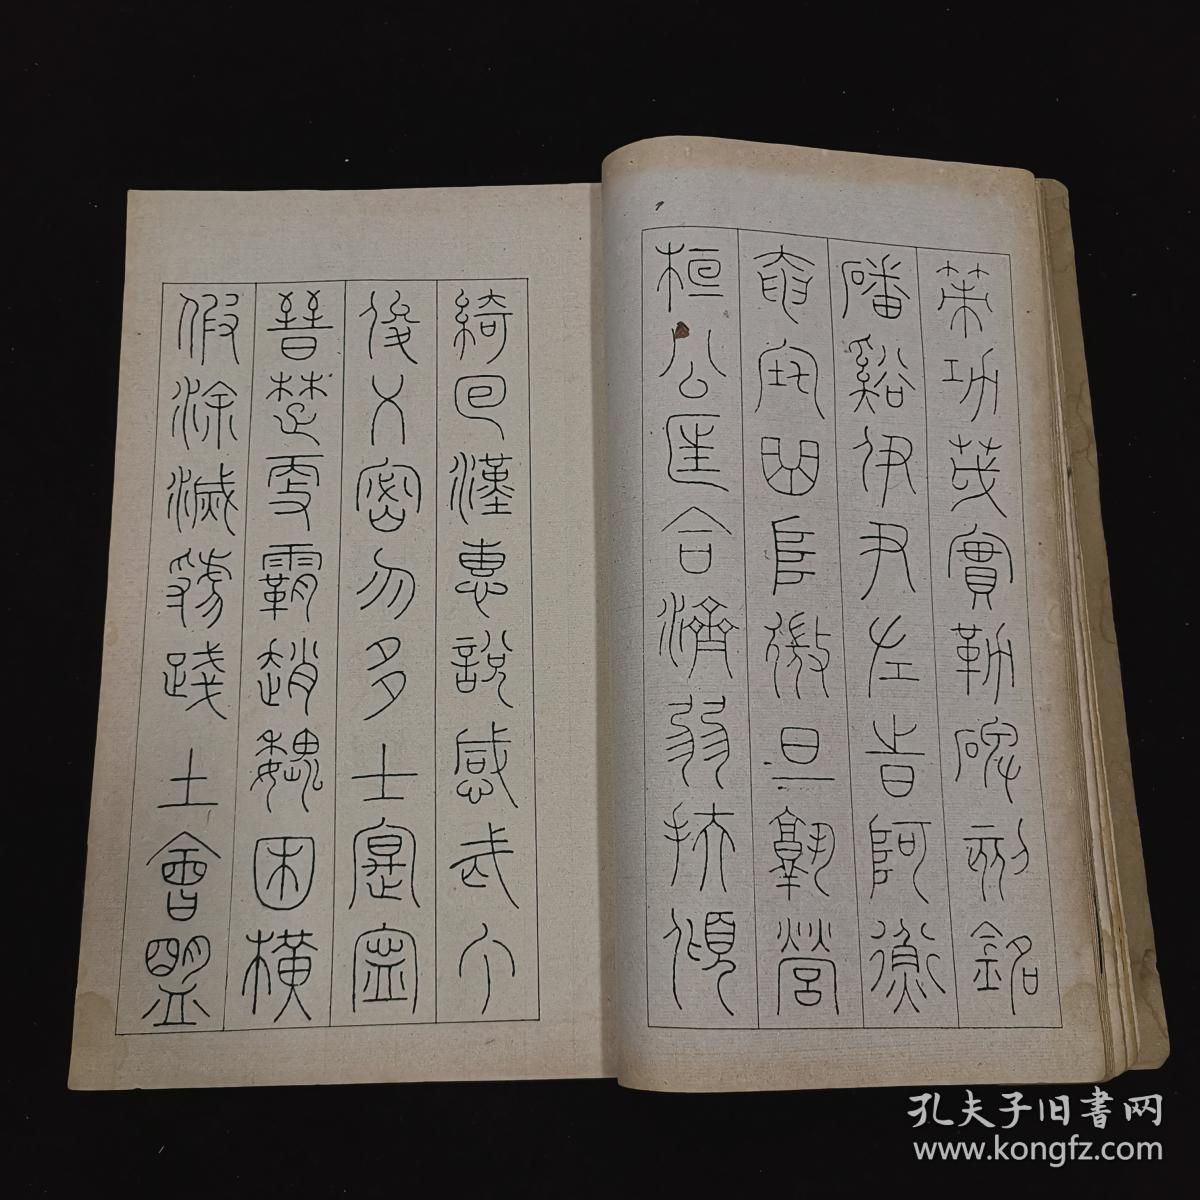 策功茂實勒碑刻銘
磻谿伊尹左旹阿衡
奄宅曲阜微旦孰營
桓公匡合濟弱扶傾
綺回漢惠說感武丁
俊乂密勿多士寔寍
晉楚更霸趙魏困橫
假涂滅虢踐土會盟
孔夫子旧書网
www.kongfz.com